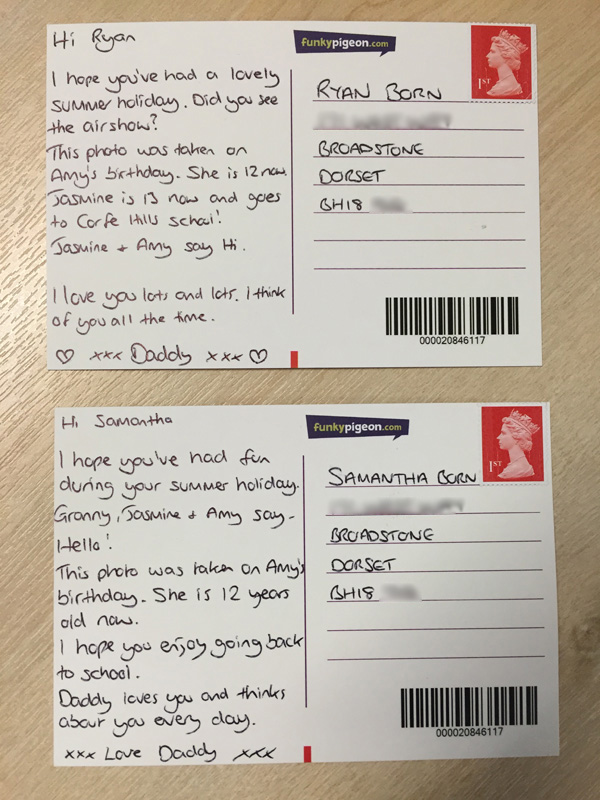 Hi Ryan
I hope you've had a lovely
summer holiday. Did you see
the airshow?
This photo was taken on
Amy's birthday. She is 12 now.
Jasmine is 13 now and goes
to Corfe Hills school!
Jasmine + Amy say Hi.
I love you lots and lots. I think
of you all the time.
♡ xxx Daddy xxx ♡
funkypigeon.com
1ST
RYAN BORN
BROADSTONE
DORSET
BH18
000020846117
Hi Samantha
I hope you've had fun
during your summer holiday.
Granny, Jasmine + Amy say -
Hello!
This photo was taken on Amy's
birthday. She is 12 years
old now.
I hope you enjoy going back
to school.
Daddy loves you and thinks
about you every day.
xxx Love Daddy xxx
funkypigeon.com
1ST
SAMANTHA BORN
BROADSTONE
DORSET
BH18
000020846117